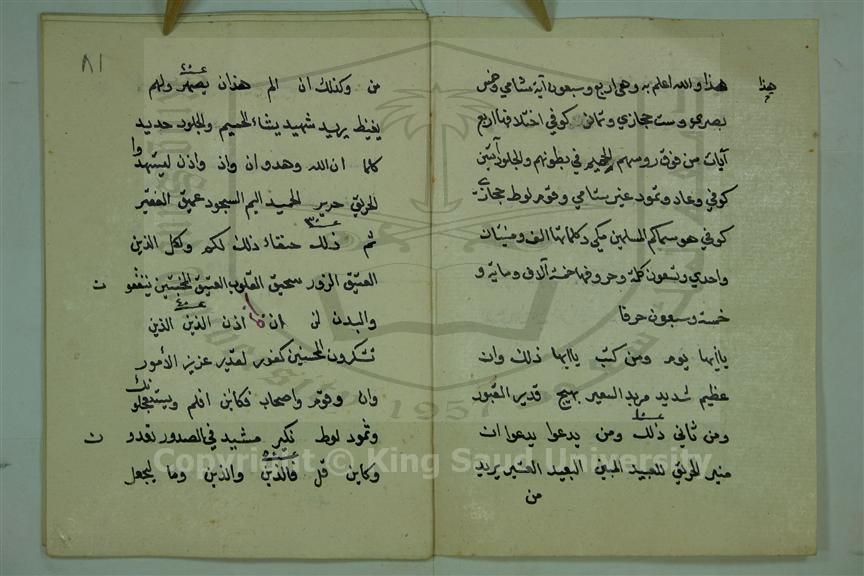 هذا والله اعلم به وهى اربع وسبعون آية شامي وخمس
هذا
بصري وست حجازي وثمان كوفي اختلافها اربع
آيات من فوق رؤسهم الحميم في بطونهم والجلود آيتين
كوفي وعاد وثمود غير شامي وقوم لوط حجازي
كوفي هو سماكم المسلمين مكي وكلماتها الف ومئتان
واحدي وتسعون كلمة وحروفها خمسة آلاف وماية و
خمسة وسبعون حرفا
ياايها يوم ومن كتب ياايها ذلك وان
عظيم شديد مريد السعير بهيج قدير القبور
ومن ثاني ذلك ومن يدعوا يدعوا ان
عشر
منير الحريق للعبيد المبين البعيد العشير يريد
من
٨١
من وكذلك ان الم هذان يصهر ولهم
يغيظ يريد شهيد يشاء الحميم والجلود حديد
كلما ان الله وهدوا ان واذ واذن ليشهدوا
الحريق حرير الحميد اليم السجود عميق الفقير
ثم ذلك حنفاء ذلك لكم ولكل الذين
العتيق الزور سحيق القلوب العتيق المخبتين ينفقون
والبدن لن ان اذن الذين الذين
تشكرون المحسنين كفور لقدير عزيز الأمور
وان وقوم واصحاب فكاين افلم ويستعجلونك
وثمود لوط نكير مشيد في الصدور تعدون
وكاين قل فالذين والذين وما ليجعل
Copyright © King Saud University
1957